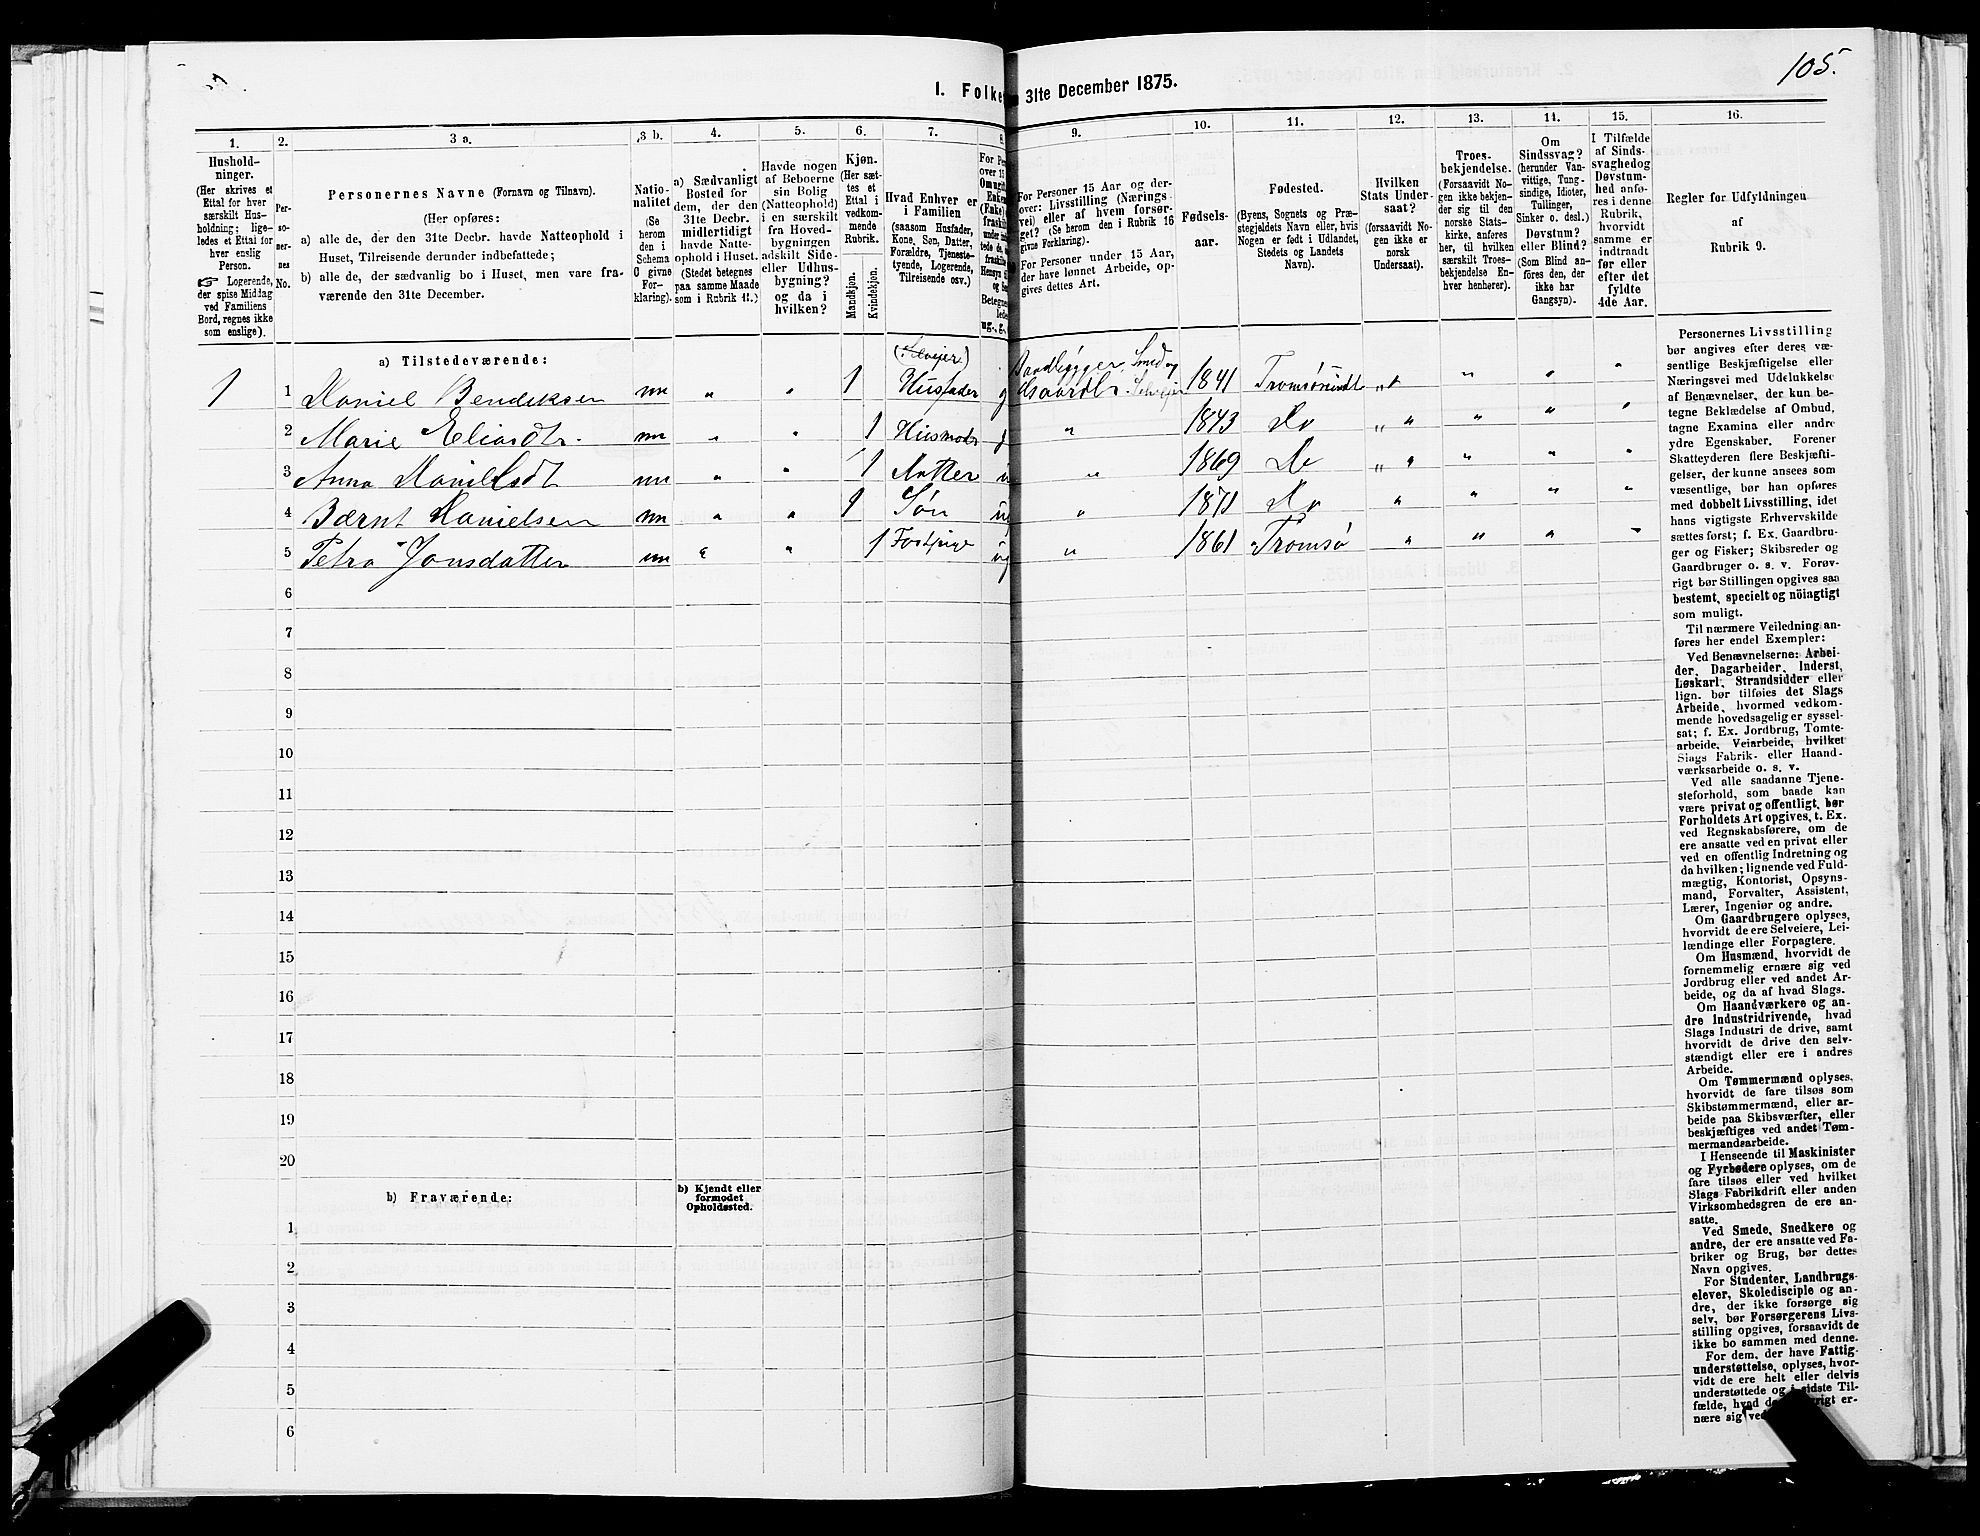 105.
1. Folke 31te December 1875.
1.
Hushold-
ninger.
(Her skrives et
Ettal for hver
særskilt Hus-
holdning; lige-
ledes et Ettal for
hver enslig
Person.
☞ Logerende,
der spise Middag
ved Familiens
Bord, regnes ikke
som enslige).
2.
Per-
so-
ner-
nes
No.
3 a.
Personernes Navne (Fornavn og Tilnavn).
(Her opføres:
a) alle de, der den 31te Decbr. havde Natteophold i
Huset, Tilreisende derunder indbefattede;
b) alle de, der sædvanlig bo i Huset, men vare fra-
værende den 31te December.
3 b.
Natio-
nalitet
(Se
herom
den i
Schema
O givne
For-
klaring).
4.
a) Sædvanligt
Bosted for
dem, der den
31te Decbr.
midlertidigt
havde Natte-
ophold i Huset.
(Stedet betegnes
paa samme Maade
som i Rubrik 11.)
5.
Havde nogen
af Beboerne
sin Bolig
(Natteophold)
i en særskilt
fra Hoved-
bygningen
adskilt Side-
eller Udhus-
bygning?
og da i
hvilken?
6.
Kjøn.
(Her sæt-
tes et
Ettal i
vedkom-
mende
Rubrik.
Mandkjøn.
Kvindekjøn.
7.
Hvad Enhver er
i Familien
(saasom Husfader,
Kone, Søn, Datter,
Forældre, Tjeneste-
tyende, Logerende,
Tilreisende osv.)
8.
For Per
over 15
Omugift
Enke
(Enke)
fraskilt
under in
tede de,
fraskilte
Hensyn ti
og S
Betegne
lede
ug., g.,
9.
For Personer 15 Aar og der-
over: Livsstilling (Nærings
vei) eller af hvem forsør-
get? (Se herom den i Rubrik 16
givne Forklaring).
For Personer under 15 Aar,
der have lønnet Arbeide, op-
gives dettes Art.
10.
Fødsels-
aar.
11.
Fødested.
(Byens, Sognets og Præ-
stegjeldets Navn eller, hvis
Nogen er født i Udlandet,
Stedets og Landets
Navn).
12.
Hvilken
Stats Under-
saat?
(forsaavidt No-
gen ikke er
norsk
Undersaat).
13.
Troes-
bekjendelse.
(Forsaavidt No-
gen ikke bekjen-
der sig til den
norske Stats-
kirke, anføres
her, til hvilken
særskilt Troes-
bekjendelse En-
hver henhører).
14.
Om
Sindssvag?
(herunder Van-
vittige, Tung-
sindige, Idioter,
Tullinger,
Sinker o. desl.)
Døvstum?
eller Blind?
(Som Blind an-
føres den, der
ikke har
Gangsyn).
15.
I Tilfælde
af Sinds-
svaghedog
Døvstum-
hed anfø-
res i denne
Rubrik,
hvorvidt
samme er
indtraadt
før eller
efter det
fyldte
4de Aar.
16.
Regler for Udfyldningen
af
Rubrik 9.
a) Tilstedeværende:
(Selveier)
1 1 Daniel Bendiksen nn " " 1 Husfader g Smed og Selveier 1841 Tromsøsundt " " " "
2 Marie Eliasdtr. nn " " 1 Husmodr g " 1843 Do " " " " "
3 Anna Danielsdt nn " " 1 Datter u " 1869 Do " " " " "
4 Bærnt Danielsen nn " " 1 Søn ug " 1871 Do " " " "
5 Petra Jonsdatter nn " " 1 ug " 1861 Tromsø " " " "
6
7
8
9
10
11
12
13
14
15
16
17
18
19
20
b) Fraværende:
b) Kjendt eller
formodet
Opholdssted.
1
2
3
4
5
6
Personernes Livsstilling
bør angives efter deres væ-
sentlige Beskjæftigelse eller
Næringsvei med Udelukkelse
af Benævnelser, der kun be-
tegne Beklædelse af Ombud,
tagne Examina eller andre
ydre Egenskaber. Forener
Skatteyderen flere Beskjæfti-
gelser, der kunne ansees som
væsentlige, bør han opføres
med dobbelt Livsstilling, idet
hans vigtigste Erhvervskilde
sættes først; f. Ex. Gaardbru-
ger og Fisker; Skibsreder og
Gaardbruger o. s. v. Forøv-
rigt bør Stillingen opgives saa
bestemt, specielt og nöiagtigt
som muligt.
Til nærmere Veiledning an-
føres her endel Exempler:
Ved Benævnelserne: Arbei-
der, Dagarbeider, Inderst,
Løskarl, Strandsidder eller
lign. bør tilføies det Slags
Arbeide, hvormed vedkom-
mende hovedsagelig er syssel-
sat; f. Ex. Jordbrug, Tomte-
arbeide, Veiarbeide, hvilket
Slags Fabrik- eller Haand-
værksarbeide o. s. v.
Ved alle saadanne Tjene-
steforhold, som baade kan
være privat og offentligt, bør
Forholdets Art opgives, t. Ex.
ved Regnskabsførere, om de
ere ansatte ved en privat eller
ved en offentlig Indretning og
da hvilken; lignende ved Fuld-
mægtig, Kontorist, Opsyns-
mand, Forvalter, Assistent,
Lærer, Ingeniør og andre.
Om Gaardbrugere oplyses,
hvorvidt de ere Selveiere, Lei-
lændinge eller Forpagtere.
Om Husmænd, hvorvidt de
fornemmelig ernære sig ved
Jordbrug eller ved andet Ar-
beide, og da af hvad Slags.
Om Haandværkere og an-
dre Industridrivende, hvad
Slags Industri de drive, samt
hvorvidt de drive den selv-
stændigt eller ere i andres
Arbeide.
Om Tømmermænd oplyses,
hvorvidt de fare tilsøs som
Skibstømmermænd, eller ar-
beide paa Skibsværfter, eller
beskjæftiges ved andet Tøm-
mermandsarbeide.
I Henseende til Maskinister
og Fyrbødere oplyses, om de
fare tilsøs eller ved hvilket
Slags Fabrikdrift eller anden
Virksomhedsgren de ere an-
satte.
Ved Smede, Snedkere og
andre, der ere ansatte ved Fa-
briker og Brug, bør dettes
Navn opgives.
For Studenter, Landbrugs-
elever, Skoledisciple og an-
dre, der ikke forsørge sig
selv, bør Forsørgerens Livs-
stilling opgives, forsaavidt de
ikke bo sammen med denne.
For dem, der have Fattig-
understøttelse, oplyses, hvor-
vidt de ere helt eller delvis
understøttede og i sidste Til-
fælde, hvad de øvrigt er-
nære sig ved